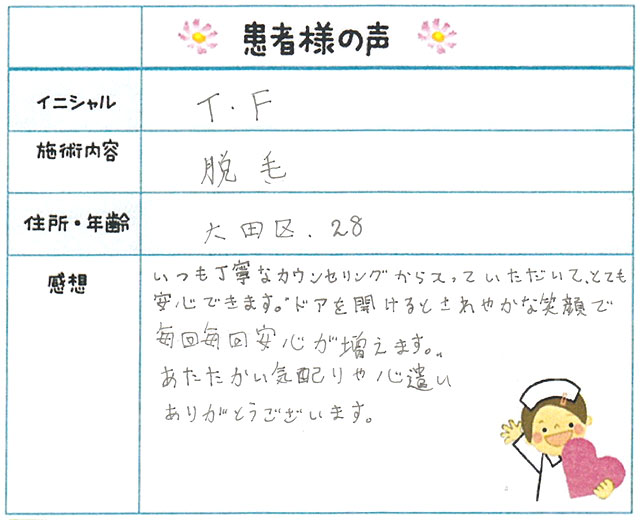 患者様の声
イニシャル T.F
施術内容 脱毛
住所・年齢 大田区.28
感想
いつも丁寧なカウンセリングから入っていただいて、とても
安心できます。"ドアを開けるとさわやかな笑顔で
毎回毎回安心が増えます。"
あたたかい気配りや心遣い
ありがとうございます。